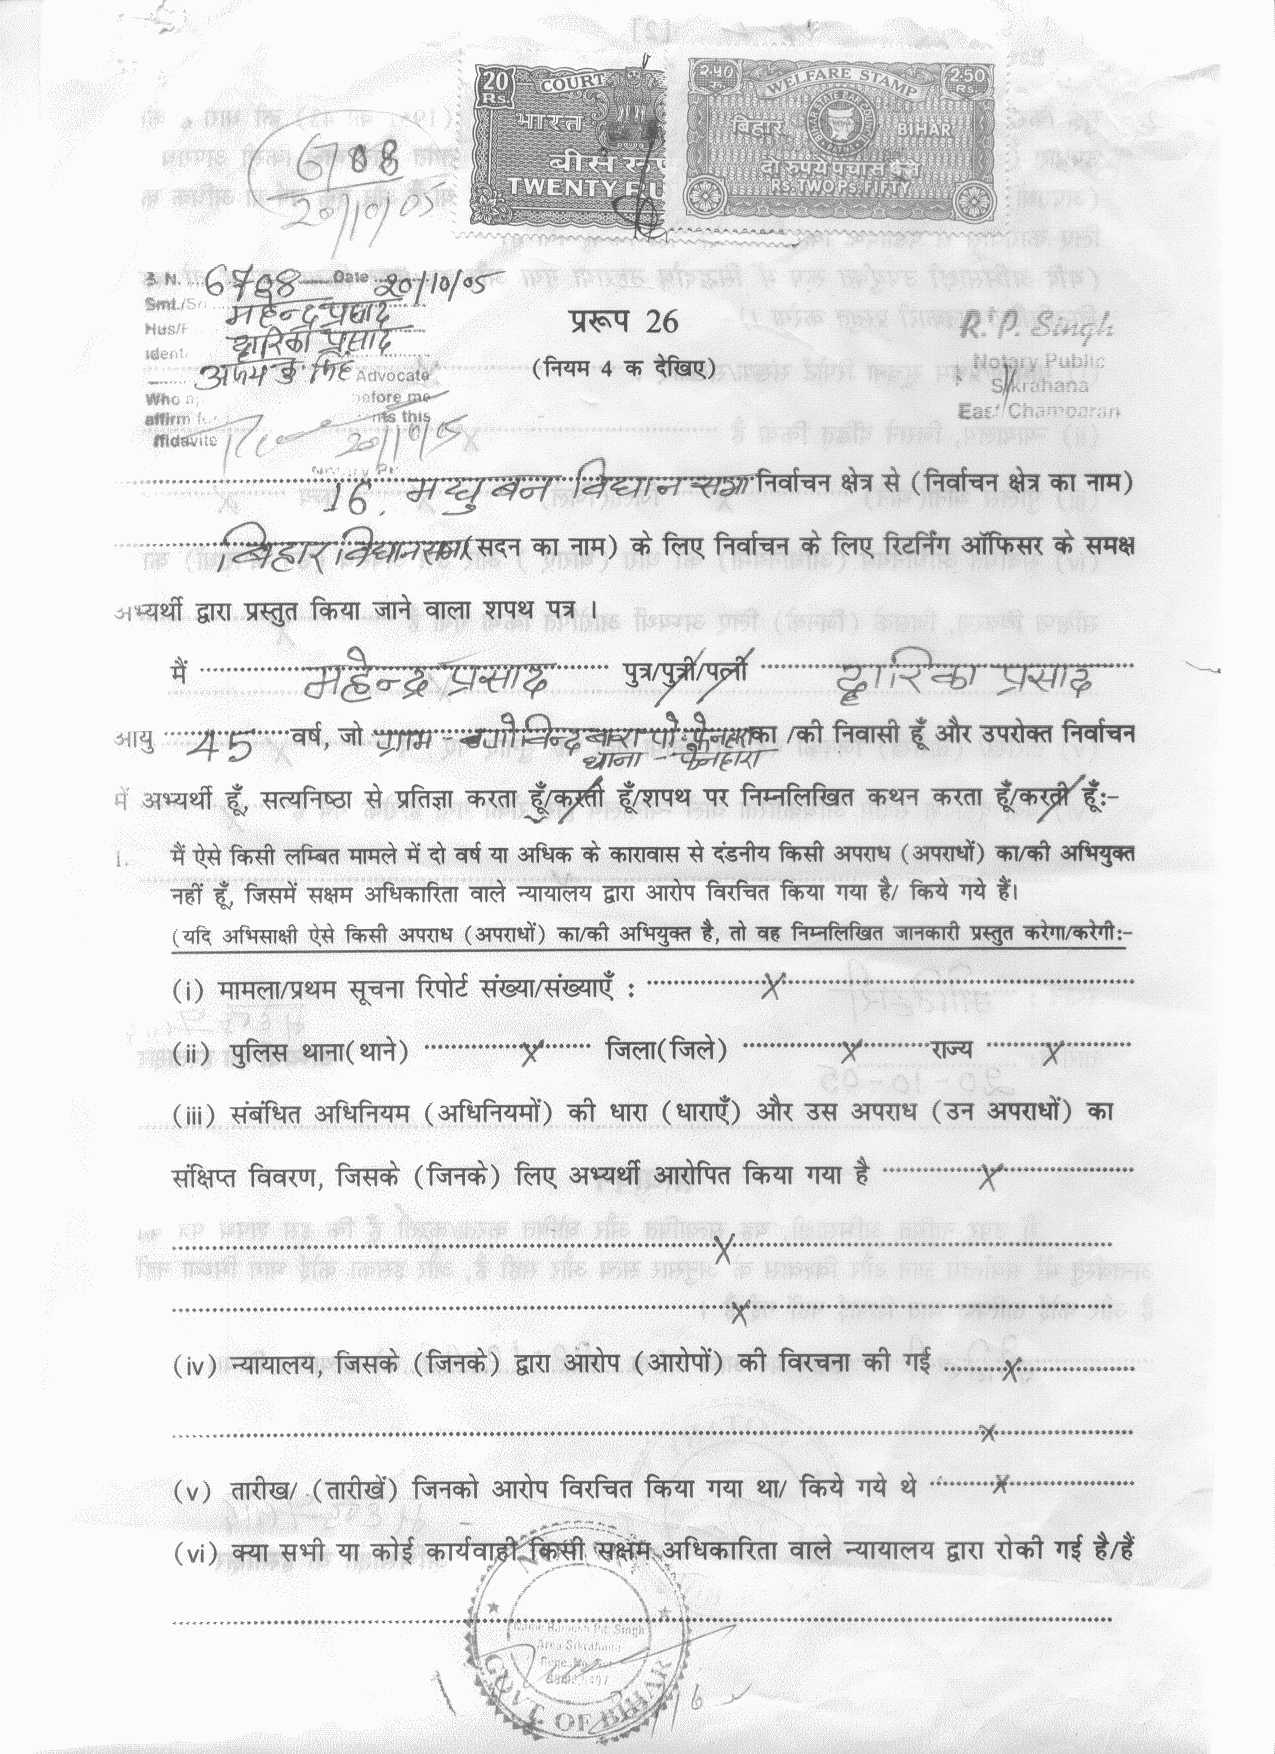 20 Rs. COURT
भारत
TWENTY
2.50 WELFARE STAMP 2.50 Rs.
बिहार BIHAR
दो रुपये पचास पैसे
RS. TWO PS. FIFTY
6708
20/10/05
S. N. 6708 Date 20/10/05
महेन्द्र प्रसाद
द्वारिका प्रसाद
अजय कु सिंह Advocate
Who before me
affirm this
ffidavite 20/10/05
प्ररूप 26
(नियम 4 क देखिए)
R. P. Singh
Notary Public
Sikrahana
East Champaran
16. मधुबन विधान सभा निर्वाचन क्षेत्र से (निर्वाचन क्षेत्र का नाम)
बिहार विधान सभा (सदन का नाम) के लिए निर्वाचन के लिए रिटर्निंग ऑफिसर के समक्ष
अभ्यर्थी द्वारा प्रस्तुत किया जाने वाला शपथ पत्र ।
मैं महेन्द्र प्रसाद पुत्र/पुत्री/पत्नी द्वारिका प्रसाद
आयु 45 वर्ष, जो ग्राम - गोविन्द बारा पो. फेनहारा का /की निवासी हूँ और उपरोक्त निर्वाचन
थाना - फेनहारा
में अभ्यर्थी हूँ, सत्यनिष्ठा से प्रतिज्ञा करता हूँ/करती हूँ/शपथ पर निम्नलिखित कथन करता हूँ/करती हूँ:-
1. मैं ऐसे किसी लम्बित मामले में दो वर्ष या अधिक के कारावास से दंडनीय किसी अपराध (अपराधों) का/की अभियुक्त
नहीं हूँ, जिसमें सक्षम अधिकारिता वाले न्यायालय द्वारा आरोप विरचित किया गया है/ किये गये हैं।
(यदि अभिसाक्षी ऐसे किसी अपराध (अपराधों) का/की अभियुक्त है, तो वह निम्नलिखित जानकारी प्रस्तुत करेगा/करेगी:-
(i) मामला/प्रथम सूचना रिपोर्ट संख्या/संख्याएँ : X
(ii) पुलिस थाना(थाने) X जिला(जिले) X राज्य X
(iii) संबंधित अधिनियम (अधिनियमों) की धारा (धाराएँ) और उस अपराध (उन अपराधों) का
संक्षिप्त विवरण, जिसके (जिनके) लिए अभ्यर्थी आरोपित किया गया है X
X
X
(iv) न्यायालय, जिसके (जिनके) द्वारा आरोप (आरोपों) की विरचना की गई X
X
(v) तारीख/ (तारीखें) जिनको आरोप विरचित किया गया था/ किये गये थे X
(vi) क्या सभी या कोई कार्यवाही किसी सक्षम अधिकारिता वाले न्यायालय द्वारा रोकी गई है/हैं
Singh
Area Sikrahana
GOVT. OF BIHAR